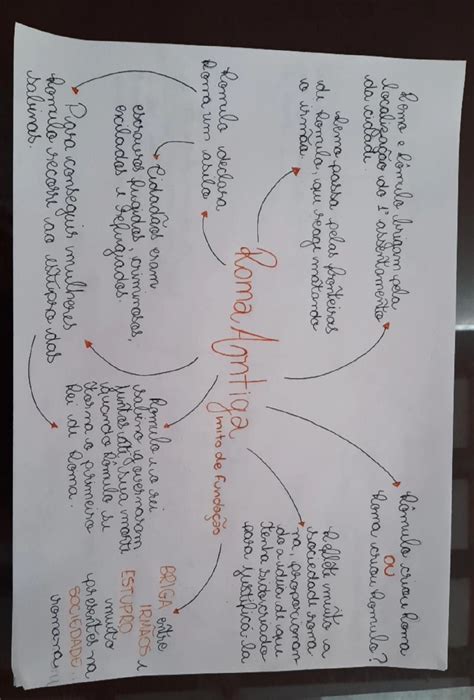 Remo e Rômulo brigam pela
localização do 1° assentamento
da cidade.
Remo passa pelas fronteiras
de Rômulo, que reage matando
o irmão.
Rômulo criou Roma
OU
Roma criou Rômulo?
Reflete muito a
sociedade roma
na, proporcionan
do a ideia de que
tenha sido criado
para justifica-la
Roma Antiga
mito de fundação
Romulo declara
Roma um asilo
Cidadãos eram
escravos fugidos, criminosos,
exilados e refugiados.
Para conseguir mulheres
Romulo recorre ao estupro das
sabinas.
Romulo e o rei
sabino governaram
juntos até sua morte
quando Rômulo se
torna o primeiro
Rei de Roma.
BRIGA entre
IRMÃOS e
ESTUPRO
muito
presentes na
SOCIEDADE
romana